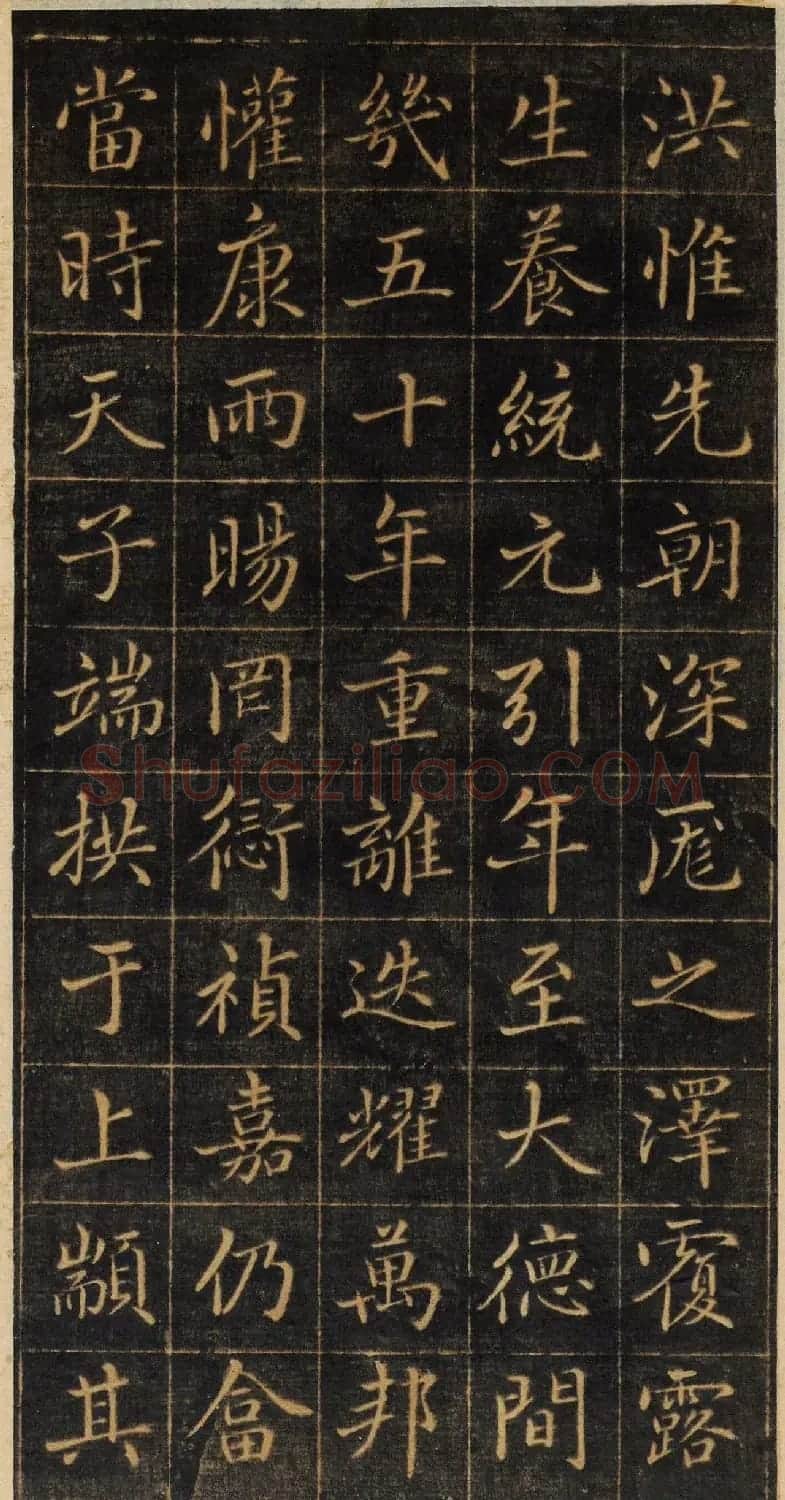 洪惟先朝深厖之澤覆露
生養統元引年至大德間
幾五十年重離迭耀萬邦
懽康雨暘罔愆禎嘉仍畣
當時天子端拱于上顓其
Shufaziliao.COM